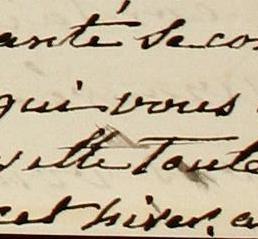 anté se con
qui vous
ette Toute
cet hiver, a